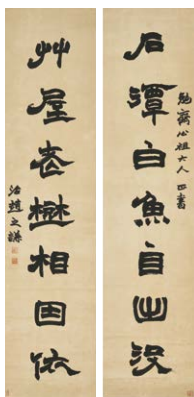 石潭白魚自出沒
勉齋公祖大人 書
艸屋老 相因依
治趙之謙